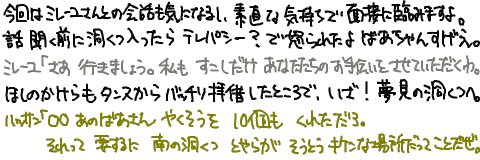 今回はミレーユさんとの会話も気になるし、素直な気持ちで面接に臨みますよ。
話聞く前に洞くつ入ったらテレパシー?で怒られたよ ばあちゃんすげえ。
ミレーユ「さあ 行きましょう。私も すこしだけ あなたたちの お手伝いを させていただくわ。
ほしのかけらもタンスからバッチリ拝借したところで、いざ!夢見の洞くつへ。
ハッサン「○○ あのばあさん やくそうを 10個も くれただろ。
それって 要するに 南の洞くつ とやらが そうとう キケンな場所だって ことだぜ。